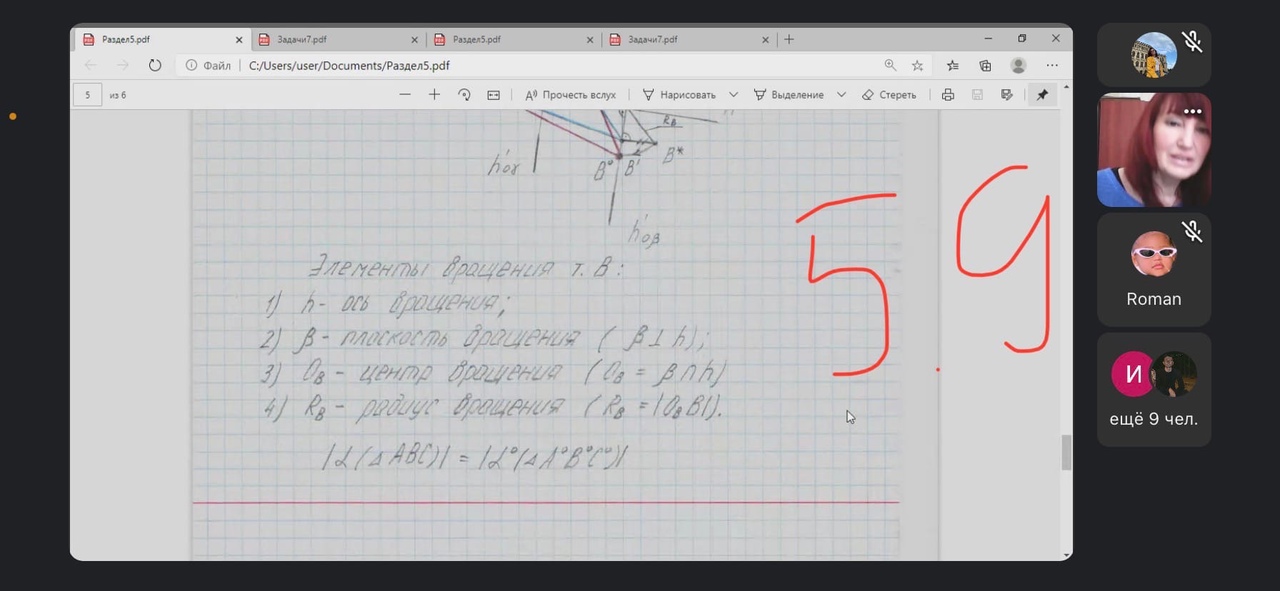 Раздел5.pdf
Задачи7.pdf
Раздел5.pdf
Задачи7.pdf
Файл
C:/Users/user/Documents/Раздел5.pdf
5
из 6
Прочесть вслух
Нарисовать
Выделение
Стереть
R_B
B*
h'₀γ
B° B'
h'₀β
5.9
Элементы вращения т. В:
1) h - ось вращения;
2) β - плоскость вращения ( β ⊥ h);
3) O_B - центр вращения ( O_B = β ∩ h)
4) R_B - радиус вращения ( R_B = |O_B B|).
|α(△ABC)| = |α°(△A°B°C°)|
Roman
И
ещё 9 чел.